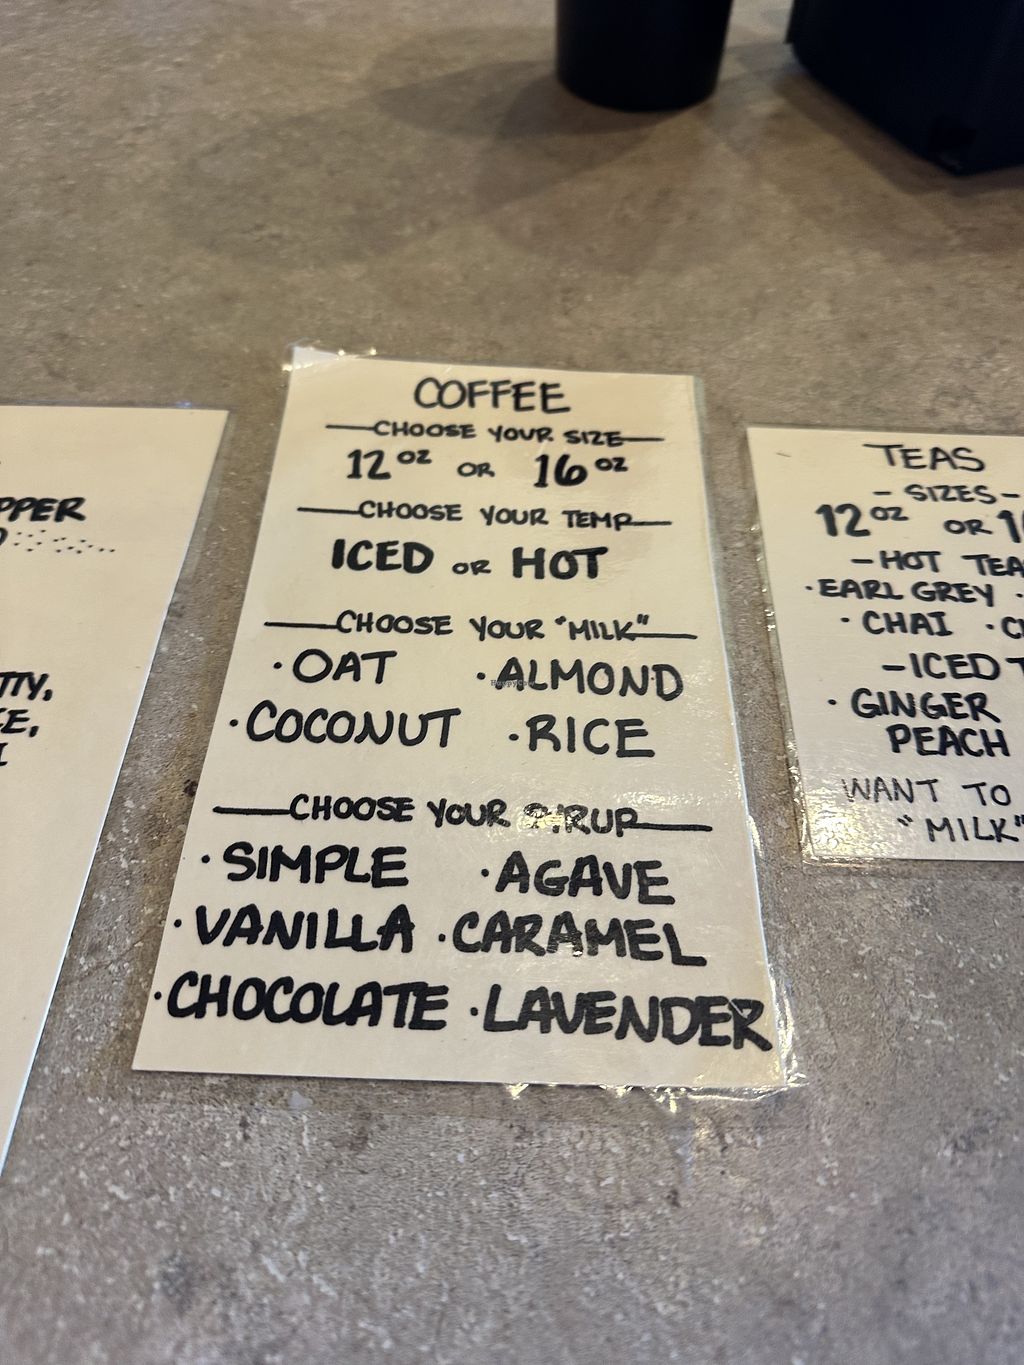 PPER
TTY,
COFFEE
CHOOSE YOUR SIZE
12 OZ OR 16 OZ
CHOOSE YOUR TEMP
ICED OR HOT
CHOOSE YOUR "MILK"
· OAT · ALMOND
· COCONUT · RICE
CHOOSE YOUR SYRUP
· SIMPLE · AGAVE
· VANILLA · CARAMEL
· CHOCOLATE · LAVENDER
HappyCow
TEAS
- SIZES -
12 OZ OR 1
- HOT TEA
· EARL GREY ·
· CHAI ·
- ICED T
· GINGER
PEACH
WANT TO
"MILK"